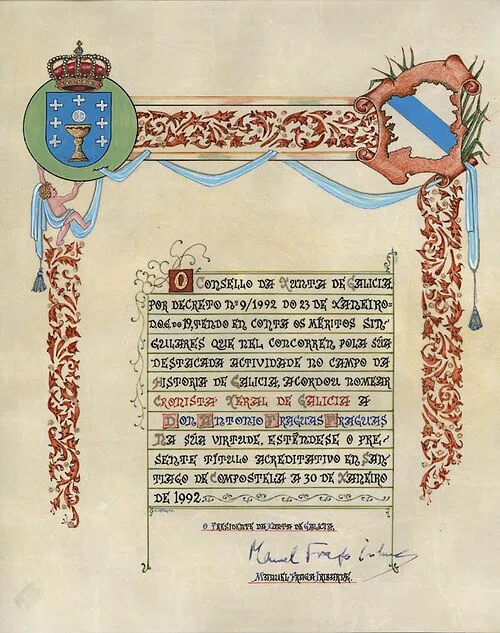 O CONSELLO DA XUNTA DE GALICIA
POR DECRETO Nº 9/1992 DO 23 DE XANEIRO-
DOG.DO 19, TENDO EN CONTA OS MÉRITOS SIN-
GULARES QUE NEL CONCORREN POLA SÚA
DESTACADA ACTIVIDADE NO CAMPO DA
HISTORIA DE GALICIA, ACORDOU NOMEAR
CRONISTA XERAL DE GALICIA A
DON ANTONIO FRAGUAS FRAGUAS
NA SÚA VIRTUDE, ESTÉNDESE O PRE-
SENTE TÍTULO ACREDITATIVO EN SAN-
TIAGO DE COMPOSTELA A 30 DE XANEIRO
DE 1992.
O PRESIDENTE DA XUNTA DE GALICIA,
Manuel Fraga Iribarne
MANUEL FRAGA IRIBARNE